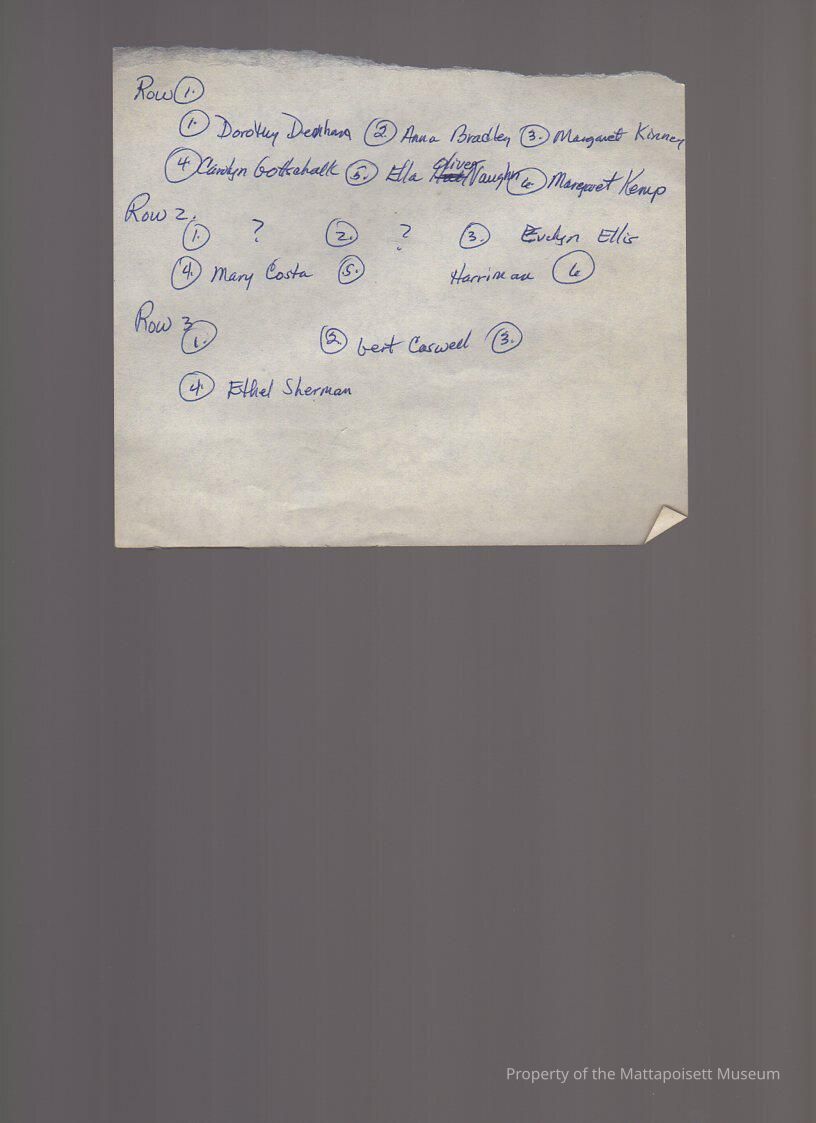 Row ①.
①. Dorothy Denham ②. Anna Bradley ③. Margaret Kinney
④. Carolyn Gottschalk ⑤. Ella Oliver Vaughn ⑥. Margaret Kemp
Row 2.
①. ? ②. ? ③. Evelyn Ellis
④. Mary Costa ⑤. Harriman ⑥.
Row 3
①. ②. Gert Caswell ③.
④. Ethel Sherman
Property of the Mattapoisett Museum